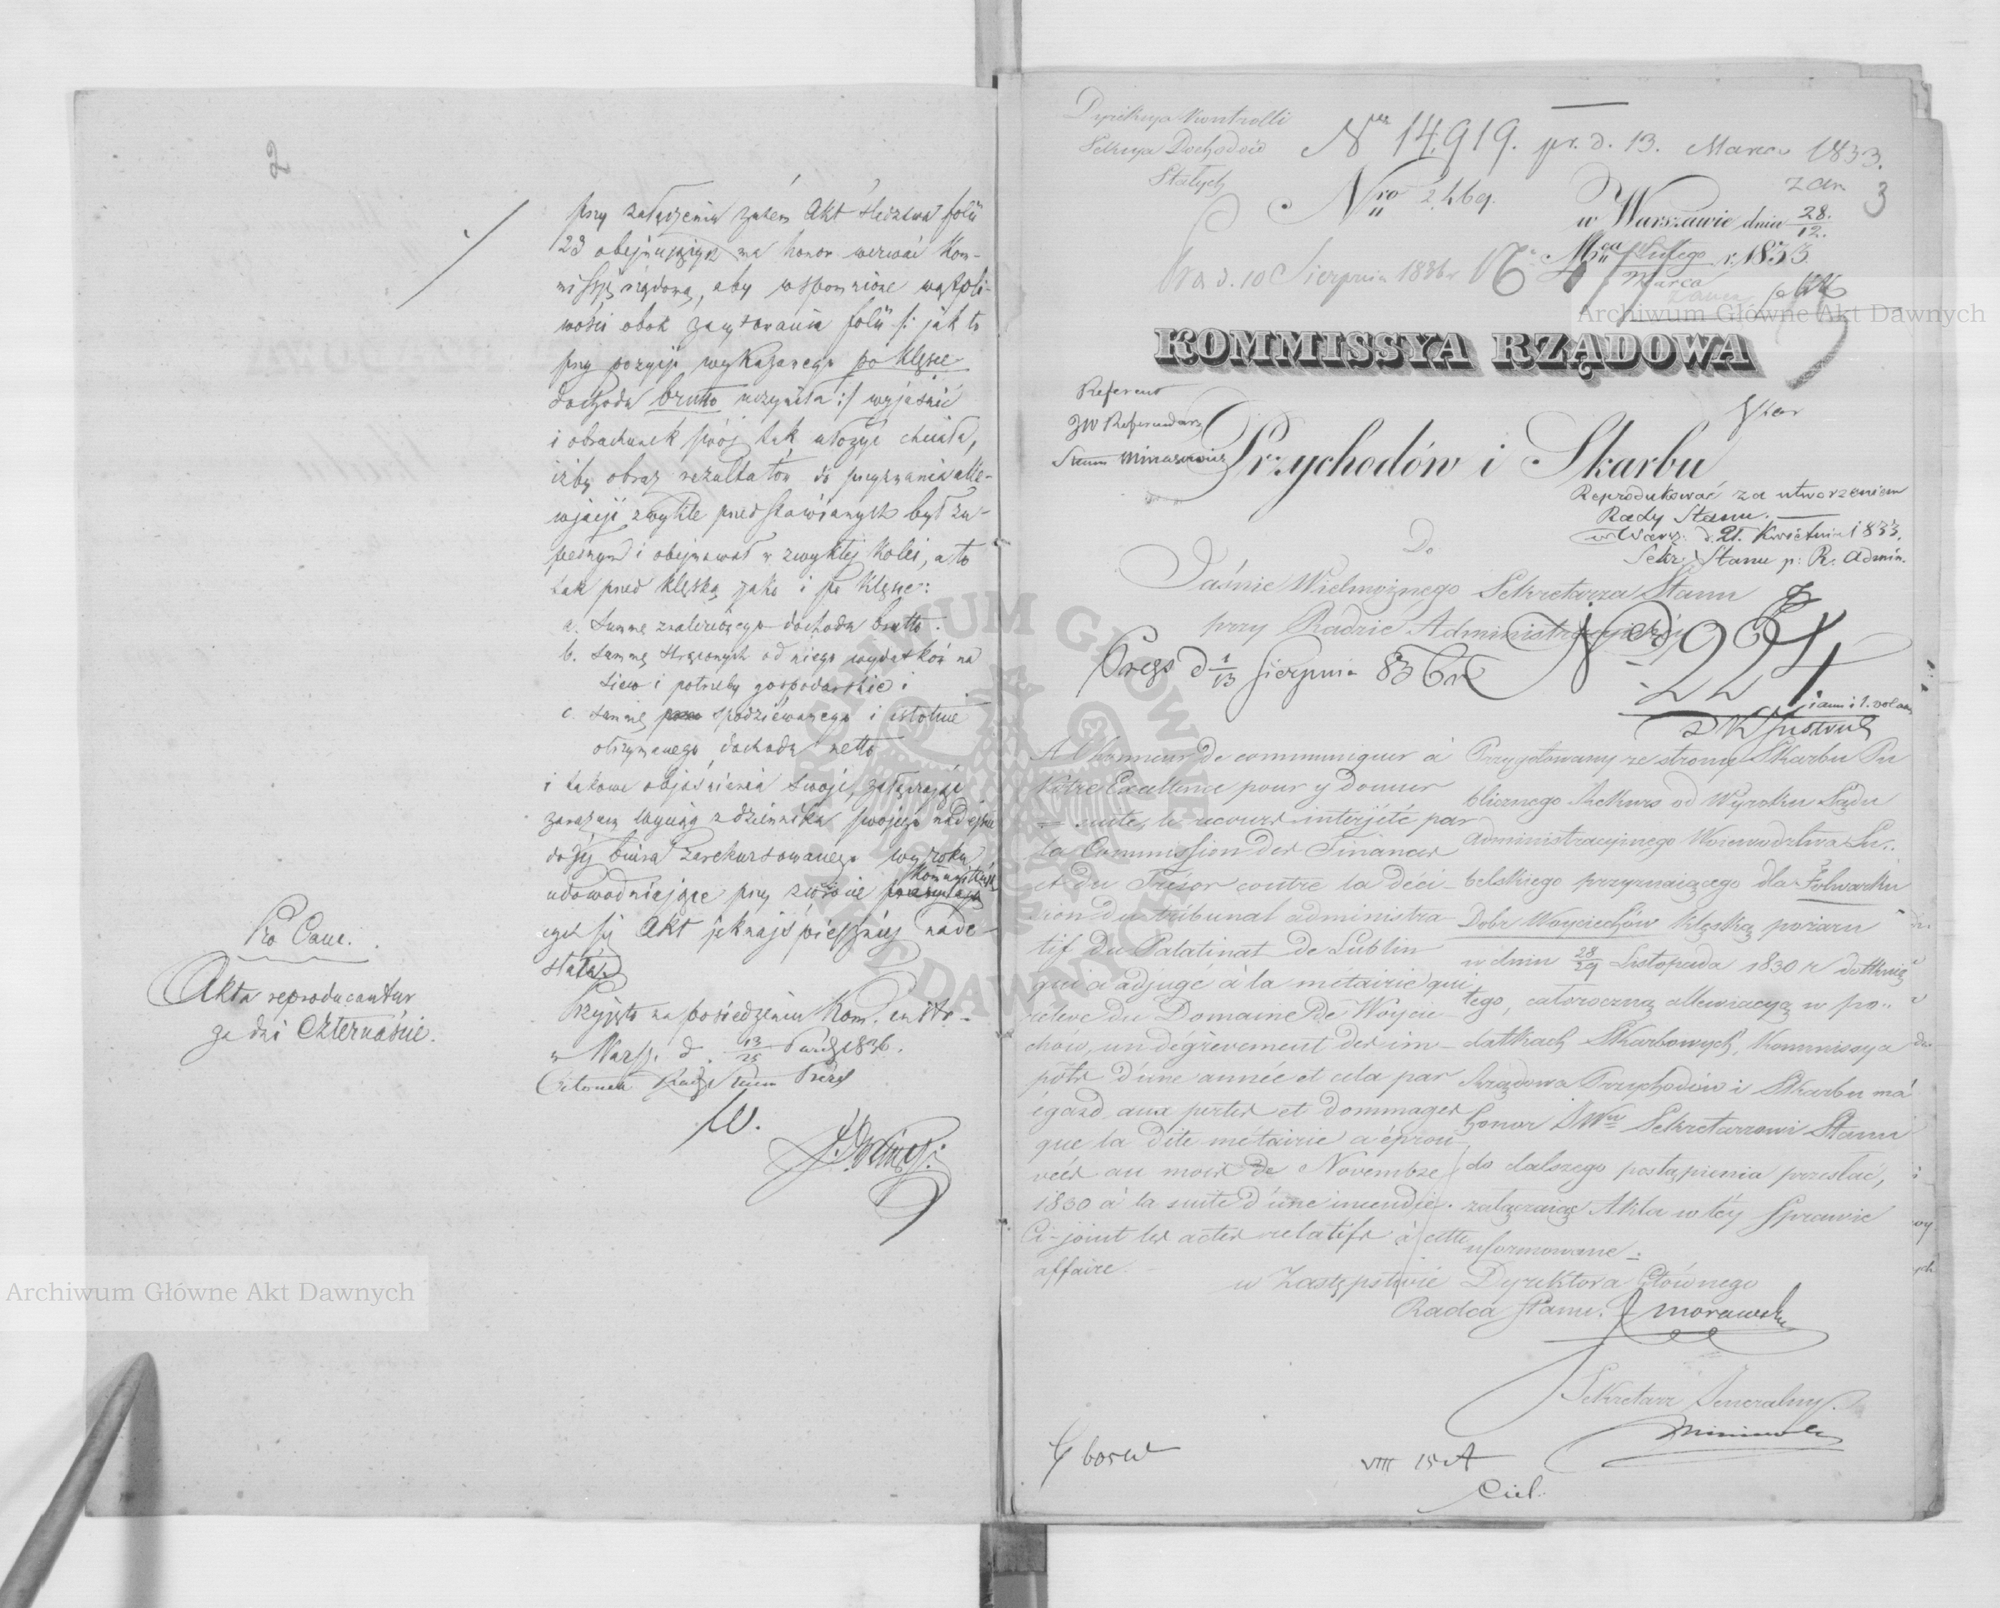 2
przy załączeniu zatem Akt śledztwa folii
23 obejmujących ma honor wezwać Kom-
missyę rządową, aby wspomnione wątpli-
wości obok
przy pozycyi wykazanego po klęsce
dochodu brutto uczyniła :/ wyjaśnić
i obrachunek swój tak ułożyć chciała,
iżby obraz rezultatów do przyznania alle-
wjacyi zwykle przedstawianych był zu-
pełnym i obejmował w zwykłej kolei, a to
tak przed klęską jako i po klęsce:
a. Summę znalezionego dochodu brutto.
b. Summę strąconych od niego wydatków na
siew i potrzeby gospodarskie i
c. Summę spodziewanego i istotnie
otrzymanego dochodu netto
i takowe objaśnienia swoje, załączając
zarazem wyciąg z dziennika swojego
do tej biura zarekursowanego wyroku
udowodniające przy zwrocie
Akt jeknajśpieszniej nade-
słała.
Przyjęto na posiedzeniu Kom.
w Warsz. d. 13/25 1836.
Członek Rady Stanu Prezes
Pro Canc.
Akta reproducantur
za dni czternaście.
Dyrekcya Kontrolli
Sekcya Dochodów
Stałych
Nro 14,919. pr. d. 13. Marca 1833.
3
Nro 2,469.
w Warszawie dnia 28./12.
Mca Lutego/Marca r. 1833
d. 10 Sierpnia 1836 r
KOMMISSYA RZĄDOWA
Przychodów i Skarbu
Referent
JW Referendarz
Stanu Minasowicz
Reprodukować za utworzeniem
Rady Stanu.
w Warsz. d. 21. Kwietnia 1833.
Sekr. Stanu p. R. Admin.
Do
Jaśnie Wielmożnego Sekretarza Stanu
przy Radzie Administracyjnej
Sierpnia 836
A l'honneur de communiquer à
Vôtre Excellence pour y donner
suite, le recours interjété par
la Commission des Finances
et du Trésor contre la déci-
sion du tribunal administra-
tif du Palatinat de Lublin
qui a adjugé à la métairie qui
releve du Domaine de Woycie-
chow, un dégrèvement des im-
pôts d'une année et cela par
égard aux pertes et dommages
que la dite métairie a éprou-
vées au mois de Novembre
1830 à la suite d'une incendie.
Ci-joint les actes relatifs à cette
affaire.
Przygotowany ze strony Skarbu Pu-
blicznego Rekurs od Wyroku Sądu
Administracyjnego Woiewodztwa Lu-
belskiego przyznaiącego dla Folwarku
Dobr Woyciechów klęską pożaru
w dniu 28/29 Listopada 1830 r dotknię-
tego, całoroczną allewiacyą w po-
datkach Skarbowych, Kommissya
Rządowa Przychodów i Skarbu ma
honor JWmu Sekretarzowi Stanu
do dalszego postąpienia przesłać,
załączaiąc Akta w tey Sprawie
uformowane.
w Zastępstwie Dyrektora Głównego
Radca Stanu. Morawski
Sekretarz Jeneralny.
VIII 15 A
Archiwum Główne Akt Dawnych
Archiwum Główne Akt Dawnych
ARCHIWUM GŁÓWNE AKT DAWNYCH W WARSZAWIE